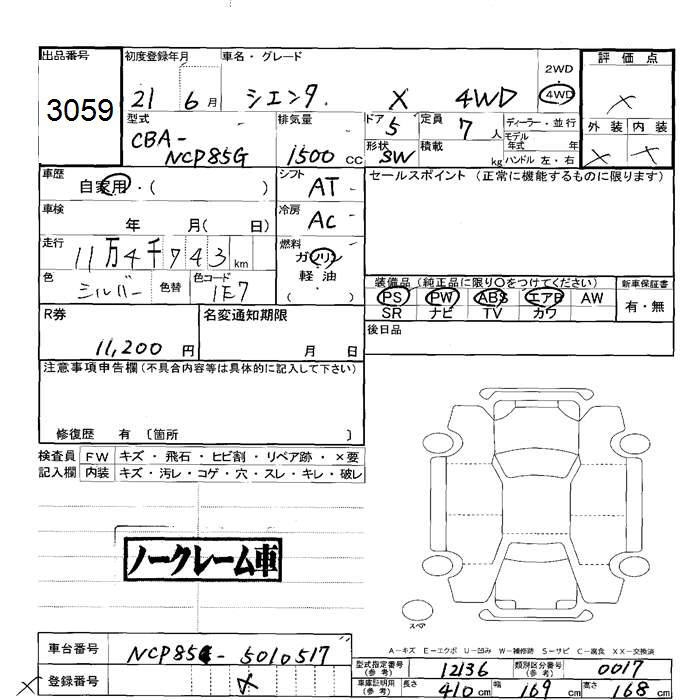 出品番号
3059
初度登録年月
21 6月
車名・グレード
シエンタ X 4WD
2WD
4WD
評価点
X
外装 内装
X X
型式
CBA-
NCP85G
排気量
1500 cc
ドア
5
定員
7 人
ディーラー・並行
モデル
年式 年
形状
SW
積載
kg
ハンドル 左・右
車歴
自家用・( )
シフト
AT -
セールスポイント (正常に機能するものに限ります)
車検
年 月( 日)
冷房
AC -
走行
11万4千743km
燃料
ガソリン
軽油
( )
色
シルバー
色替
色コード
1E7
装備品 (純正品に限り○をつけてください)
PS PW ABS エアB AW
SR ナビ TV カワ
新車保証書
有・無
R券
11,200 円
名変通知期限
月 日
後日品
注意事項申告欄 (不具合内容等は具体的に記入して下さい)
修復歴 有 〔箇所 〕
検査員 FW キズ・飛石・ヒビ割・リペア跡・×要
記入欄 内装 キズ・汚レ・コゲ・穴・スレ・キレ・破レ
ノークレーム車
スペア
A-キズ E-エクボ U-凹み W-補修跡 S-サビ C-腐食 XX-交換済
車台番号
NCP85G-5010517
登録番号
型式指定番号
(参考)
12136
類別区分番号
(参考)
0017
車庫証明用
(参考)
長さ 410cm 幅 169cm 高さ 168cm